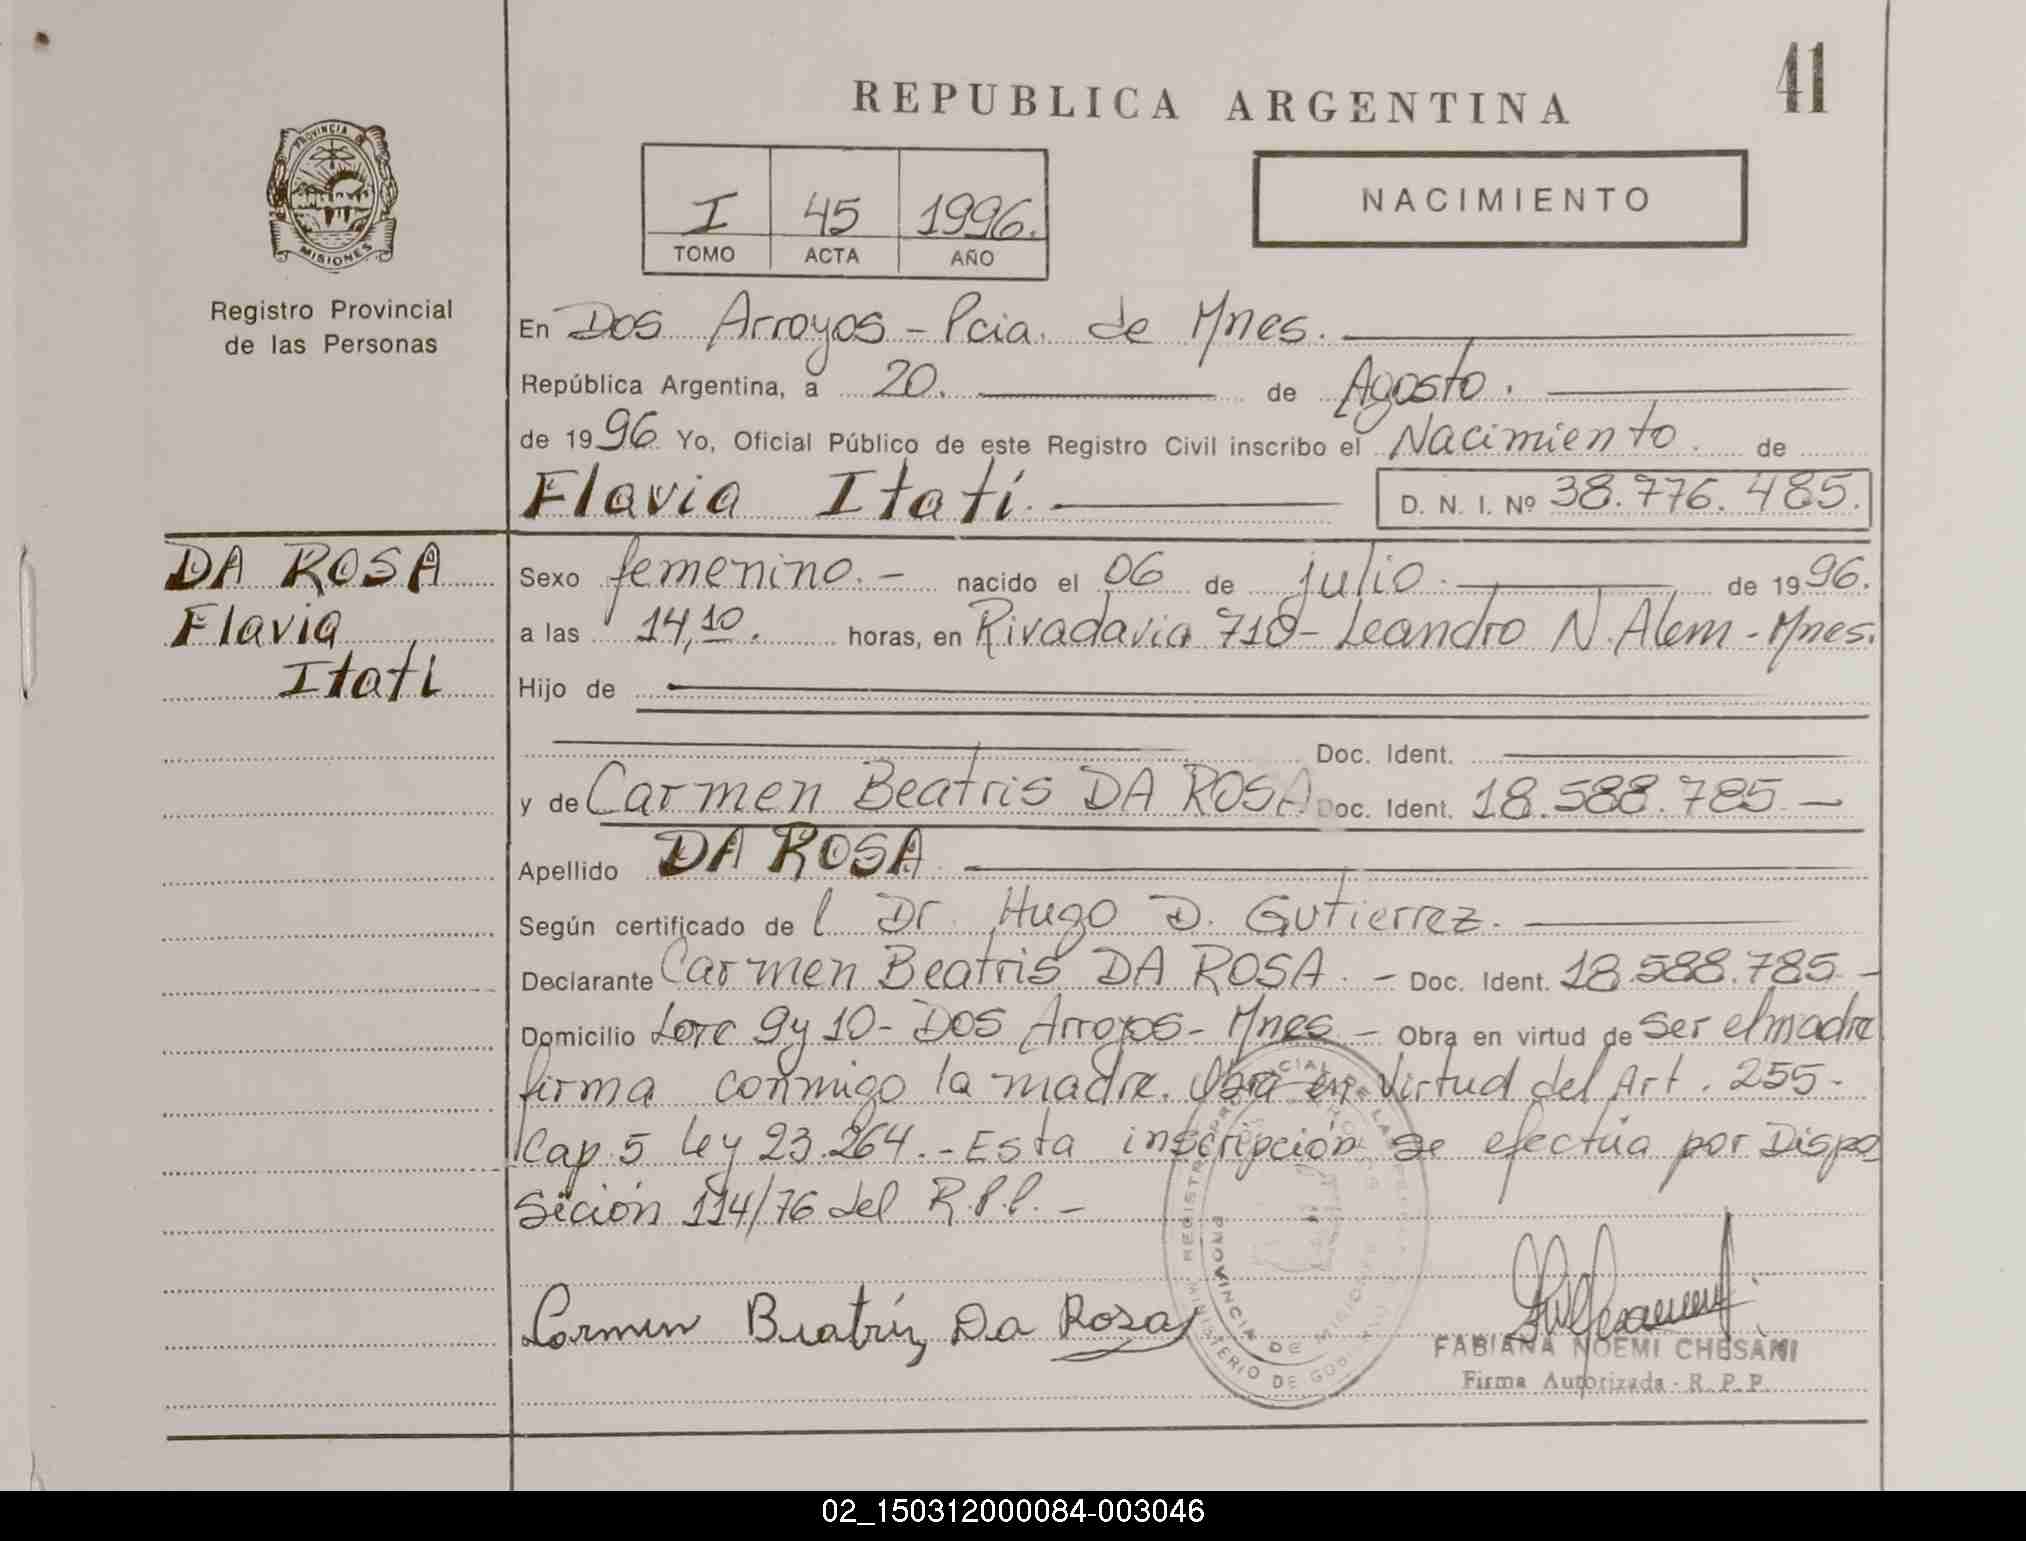 41
REPUBLICA ARGENTINA
PROVINCIA DE
MISIONES
Registro Provincial
de las Personas
I 45 1996.
TOMO ACTA AÑO
NACIMIENTO
En Dos Arroyos - Pcia. de Mnes.
República Argentina, a 20. de Agosto.
de 1996. Yo, Oficial Público de este Registro Civil inscribo el Nacimiento. de
Flavia Itatí. D. N. I. Nº 38.776.485.
DA ROSA
Flavia
Itatí
Sexo femenino. - nacido el 06 de julio. de 1996.
a las 14,10. horas, en Rivadavia 710 - Leandro N. Alem - Mnes.
Hijo de
Doc. Ident.
y de Carmen Beatris DA ROSA. Doc. Ident. 18.588.785. -
Apellido DA ROSA
Según certificado de l Dr. Hugo D. Gutierrez.
Declarante Carmen Beatris DA ROSA. - Doc. Ident. 18.588.785. -
Domicilio Lote 9 y 10 - Dos Arroyos - Mnes. - Obra en virtud de ser el madre
firma conmigo la madre. Obra en Virtud del Art. 255-
Cap. 5 Ley 23.264. - Esta inscripción se efectúa por Dispo
sición 114/76 del R.P.P. -
Carmen Beatríz Da Rosa
REGISTRO PROVINCIAL DE LAS
PROVINCIA DE MISIONES
MINISTERIO DE GOBI
FABIANA NOEMI CHESANI
Firma Autorizada - R. P. P.
02_150312000084-003046